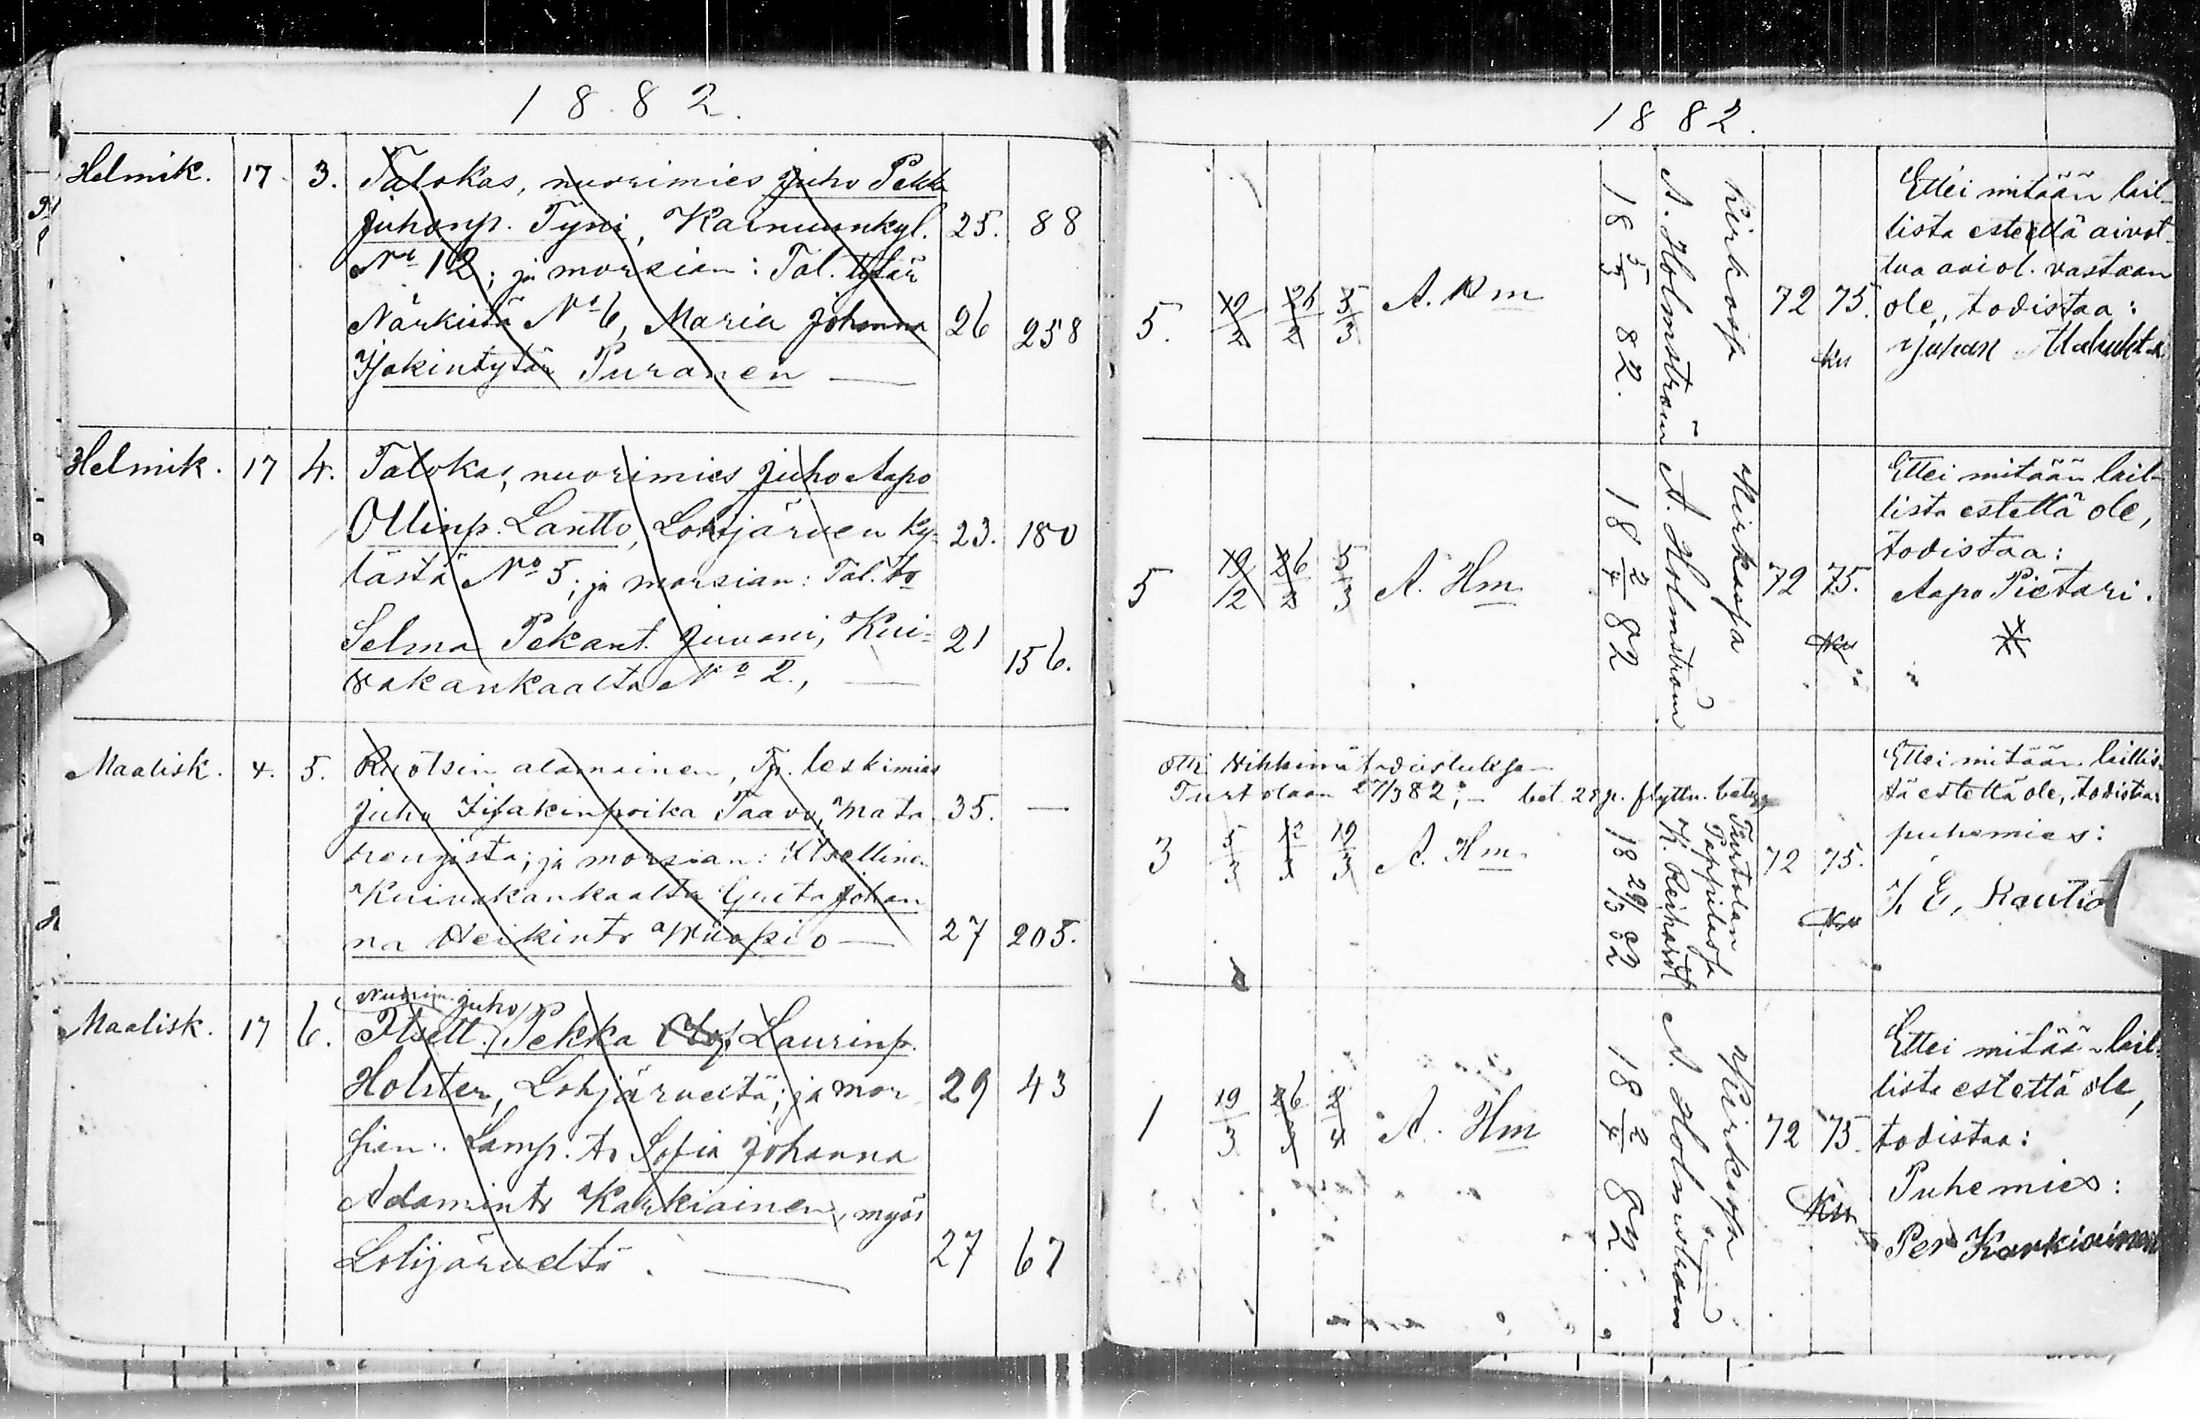 1882.
Helmik. 17. 3. Talokas, nuorimies Juho Pekka
Juhonp. Tyni, Kainuunkyl. 25. 88
No 12; ja morsian: Tal. tytär
Närkistä No 6, Maria Johanna 26 258
Isakintytär Puranen —
Helmik. 17 4. Talokas, nuorimies Juho Aapo
Ollinp. Lantto, Lohijärven ky- 23. 180
lästä No 5; ja morsian: Tal. tr
Selma Pekant. Juvani, Kui- 21 156.
vakankaalta No 2., —
Maalisk. 4. 5. Ruotsin alamainen, Tp. leskimies
Juho Iisakinpoika Taavo, Mata- 35. —
rengistä; ja morsian: Itsellinen
Kuivakankaalta Greta Johan
na Heikintr Niiopio — 27 205.
Maalisk. 17 6. Nuorim. Juho
Itsell. Pekka Laurinp.
Holster, Lohijärveltä; ja mor- 29 43
sian: Lamp. tr Sofia Johanna
Adamintr Karkiainen, myös
Lohijärveltä. — 27 67
1882.
5. 12/2 26/2 5/3 A. Hm 18 5/3 82. A. Holmström Kirkossa 72 75.
Ettei mitään lail-
lista estettä aivot-
tua aviol. vastaan
ole, todistaa:
Juhan
5 19/12 26/2 5/3 A. Hm 18 2/4 82 A. Holmström Kirkossa 72 75.
Ettei mitään lail-
lista estettä ole,
todistaa:
Aapo Pietari.
Otti Vihkimätodistuksen
Turtolaan 27/3 82; — bet. 25 p. flyttn. betyg
3 5/3 12/3 19/3 A. Hm 18 29/3 82 Turtolan Pappilassa 72 75.
Ettei mitään laillis-
ta estettä ole, todistaa
puhemies:
K E, Rautio
1 19/3 26/3 2/4 A. Hm 18 2/4 82. A. Holmström Kirkossa 72 75.
Ettei mitään lail-
lista estettä ole,
todistaa:
Puhemies:
Per Karkiainen